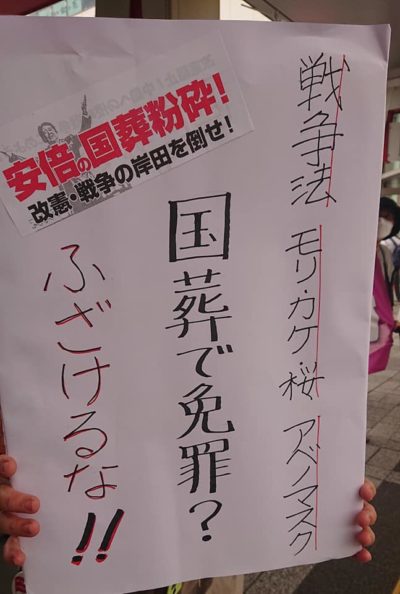 安倍の国葬粉砕！
改憲・戦争の岸田を倒せ！
戦争法 モリ・カケ・桜 アベノマスク
国葬で免罪？
ふざけるな!!